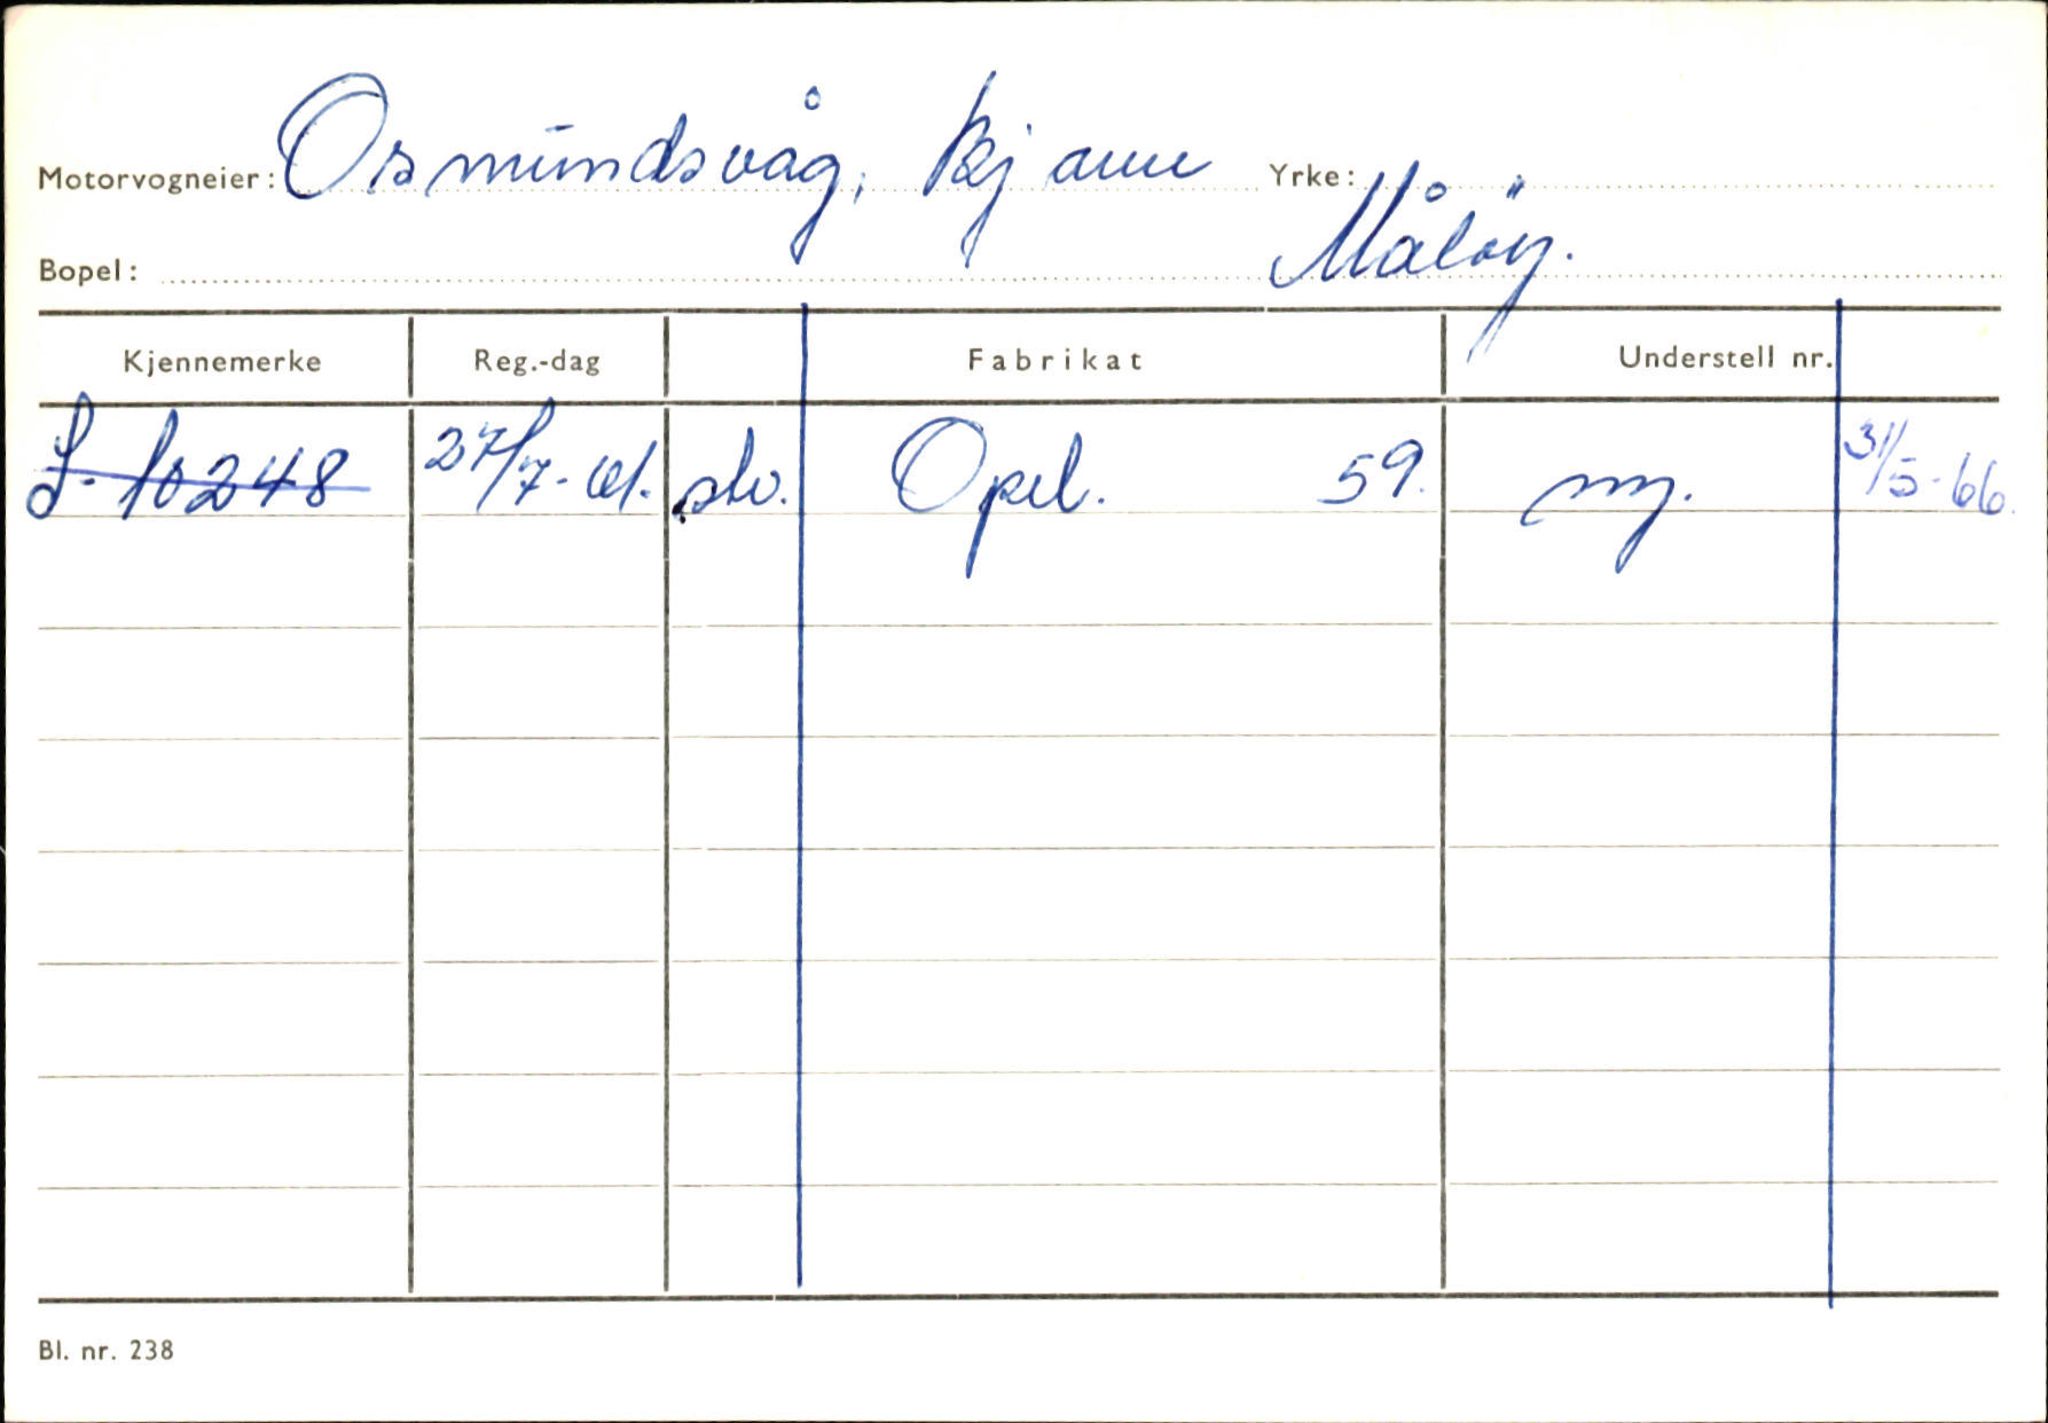 Motorvogneier: Osmundsvåg, Bjarne Yrke:
Bopel: Måløy.
Kjennemerke Reg.-dag Fabrikat Understell nr.
S-10248 27/7-61. stv. Opel. 59. ny. 31/5-66.
Bl. nr. 238